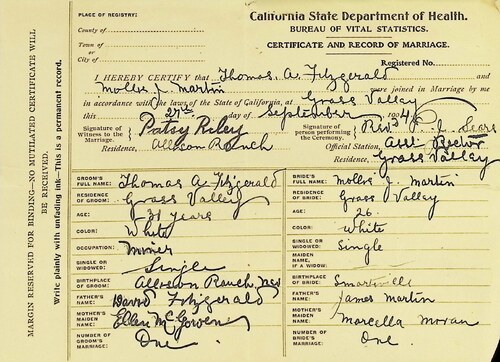 MARGIN RESERVED FOR BINDING—NO MUTILATED CERTIFICATE WILL
BE RECEIVED.
Write plainly with unfading ink—This is a permanent record.
California State Department of Health.
BUREAU OF VITAL STATISTICS.
CERTIFICATE AND RECORD OF MARRIAGE.
PLACE OF REGISTRY:
County of
Town of
or
City of
Registered No.
I HEREBY CERTIFY that Thomas. A. Fitzgerald and
Mollie J. Martin were joined in Marriage by me
in accordance with the laws of the State of California, at Grass Valley
this 27th day of September 1904
Signature of Witness to the Marriage, Patsy Riley
Residence, Allison Ranch
Signature of person performing the Ceremony, Rev. J. Sears
Official Station, Asst Rector
Residence, Grass Valley
GROOM'S FULL NAME: Thomas A Fitzgerald
RESIDENCE OF GROOM: Grass Valley
AGE: 31 years
COLOR: White
OCCUPATION: Miner
SINGLE OR WIDOWED: Single
BIRTHPLACE OF GROOM: Allison Ranch, Nev
FATHER'S NAME: David Fitzgerald
MOTHER'S MAIDEN NAME: Ellen McGovern
NUMBER OF GROOM'S MARRIAGE: One
BRIDE'S FULL NAME: Mollie J. Martin
RESIDENCE OF BRIDE: Grass Valley
AGE: 26
COLOR: White
SINGLE OR WIDOWED: Single
MAIDEN NAME, IF A WIDOW:
BIRTHPLACE OF BRIDE: Smartville
FATHER'S NAME: James Martin
MOTHER'S MAIDEN NAME: Marcella Moran
NUMBER OF BRIDE'S MARRIAGE: One